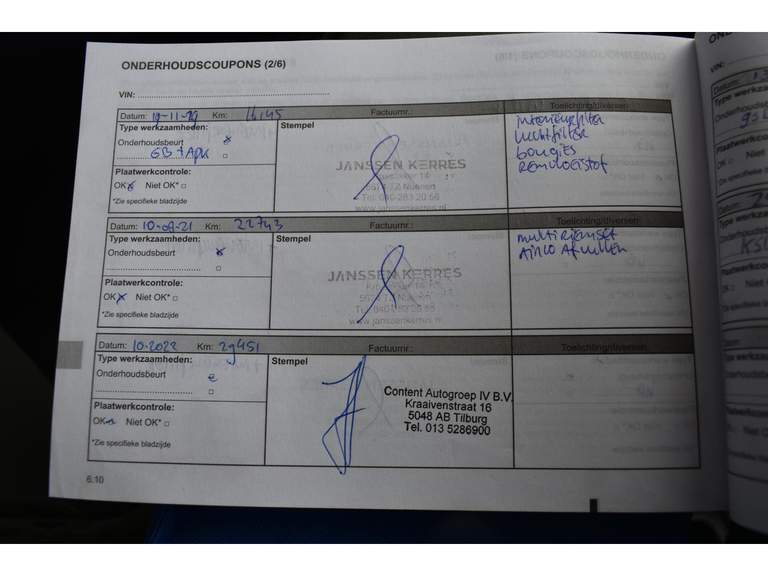 ONDERHOUDSCOUPONS (2/6)
VIN:
Datum: Km: 16145 Factuurnr.: Toelichting/diversen:
Type werkzaamheden: Stempel
Onderhoudsbeurt
GB + Apk
Plaatwerkcontrole:
OK Niet OK*
*Zie specifieke bladzijde
JANSSEN KERRES
Nuenen
Tel. 040-283 20 56
www.janssenkerres.nl
interieurfilter
luchtfilter
bougies
Remvloeistof
Datum: 10-08-21 Km: 22743 Factuurnr.: Toelichting/diversen:
Type werkzaamheden: Stempel
Onderhoudsbeurt
Plaatwerkcontrole:
OK Niet OK*
*Zie specifieke bladzijde
JANSSEN KERRES
Nuenen
www.janssenkerres.nl
multiriemset
Airco Afvullen
Datum: 10-2022 Km: 29451 Factuurnr.: Toelichting/diversen:
Type werkzaamheden: Stempel
Onderhoudsbeurt
Plaatwerkcontrole:
OK Niet OK*
*Zie specifieke bladzijde
Content Autogroep IV B.V.
Kraaivenstraat 16
5048 AB Tilburg
Tel. 013 5286900
6.10